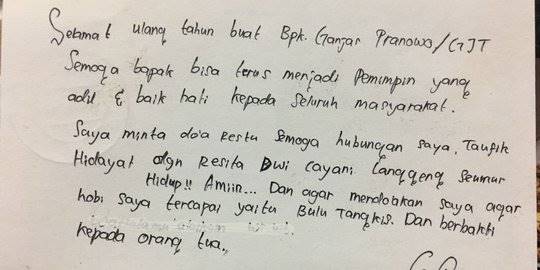 Selamat ulang tahun buat Bpk. Ganjar Pranowo/GJT
Semoga bapak bisa terus menjadi Pemimpin yang
adil & baik hati kepada seluruh masyarakat.
Saya minta do'a Restu semoga hubungan saya, Taufik
Hidayat dgn Resita Dwi Cayani Langgeng Seumur
Hidup!! Amiin... Dan agar mendoakan saya agar
hobi saya tercapai yaitu Bulu Tangkis. Dan berbakti
kepada orang tua.,